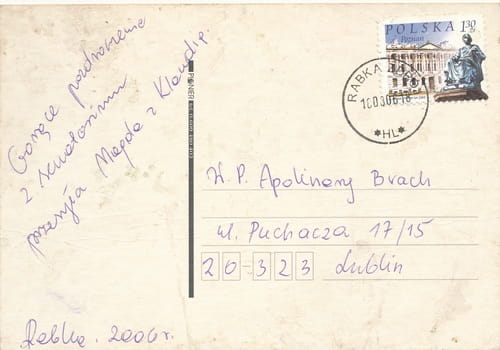 Gorące pozdrowienia
z sanatorium
przesyła Magda z Klaudią.
Rabka. 2006r.
PIONIER
POLSKA 1,30 ZŁ
Poznań
RABKA
100306-18
*HL*
W.P. Apolinary Brach
ul. Puchacza 17/15
20-323 Lublin